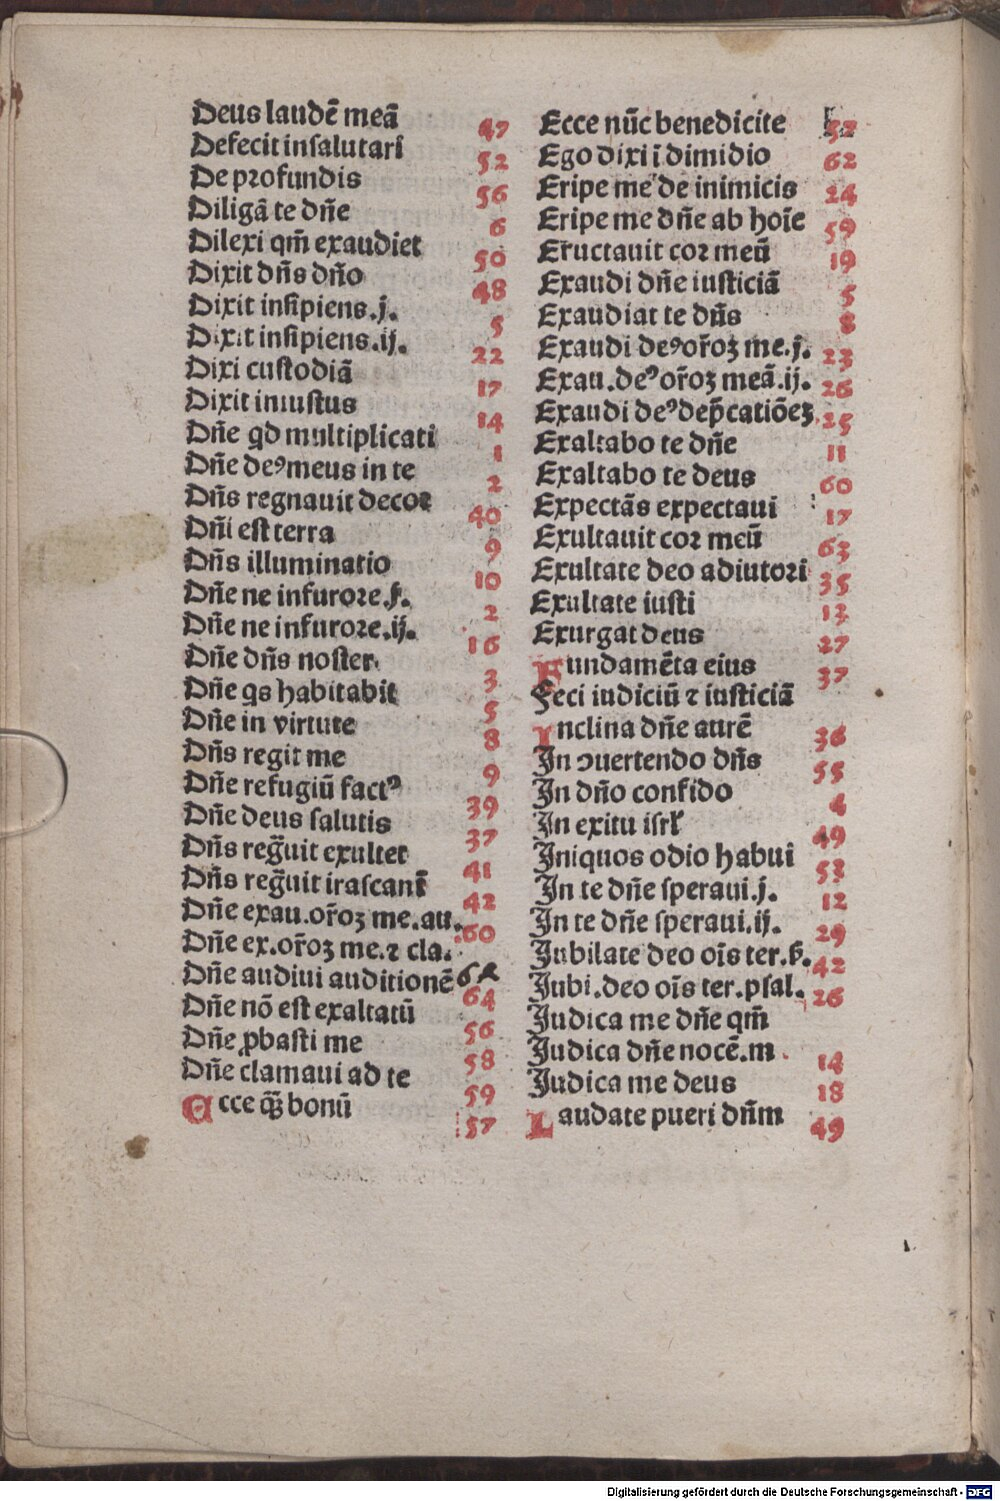 Deus laudē meā 47
Defecit in salutari 52
De profundis 56
Diligā te dñe 6
Dilexi qm̄ exaudiet 50
Dixit dñs dño 48
Dixit insipiens .j. 5
Dixit insipiens .ij. 22
Dixi custodiā 17
Dixit iniustus 14
Dñe qd multiplicati 1
Dñe deꝰ meus in te 2
Dñs regnauit decor 40
Dñi est terra 9
Dñs illuminatio 10
Dñe ne in furore .p̄. 2
Dñe ne in furore .ij. 16
Dñe dñs noster 3
Dñe qs habitabit 5
Dñe in virtute 8
Dñs regit me 9
Dñe refugiū factꝰ 39
Dñe deus salutis 37
Dñs reg̃uit exultet 41
Dñs reg̃uit irascant̃ 42
Dñe exau.or̃oꝫ me.au. 60
Dñe ex.or̃oꝫ me.⁊ cla.
Dñe audiui auditionē 64
Dñe nō est exaltatū 56
Dñe ꝓbasti me 58
Dñe clamaui ad te 59
Ecce q̃ bonū 57
Ecce nūc benedicite 57
Ego dixi ī dimidio 62
Eripe me de inimicis 24
Eripe me dñe ab hoīe 59
Eructauit cor meū 19
Exaudi dñe iusticiā 5
Exaudiat te dñs 8
Exaudi deꝰ or̃oꝫ me.j. 23
Exau.deꝰ or̃oꝫ meā.ij. 26
Exaudi deꝰ dep̄catiōeꝫ 25
Exaltabo te dñe 11
Exaltabo te deus 60
Expectās expectaui 17
Exultauit cor meū 63
Exultate deo adiutori 35
Exultate iusti 13
Exurgat deus 27
Fundamēta eius 37
Feci iudiciū ⁊ iusticiā
Inclina dñe aurē 36
In ↄuertendo dñs 55
In dño confido 4
In exitu isrl̃ 49
Iniquos odio habui 53
In te dñe speraui .j. 12
In te dñe speraui .ij. 29
Iubilate deo oīs ter.p̄. 42
Iubi.deo oīs ter.psal. 26
Iudica me dñe qm̄
Iudica dñe nocē.m 14
Iudica me deus 18
Laudate pueri dñm 49
Digitalisierung gefördert durch die Deutsche Forschungsgemeinschaft - DFG